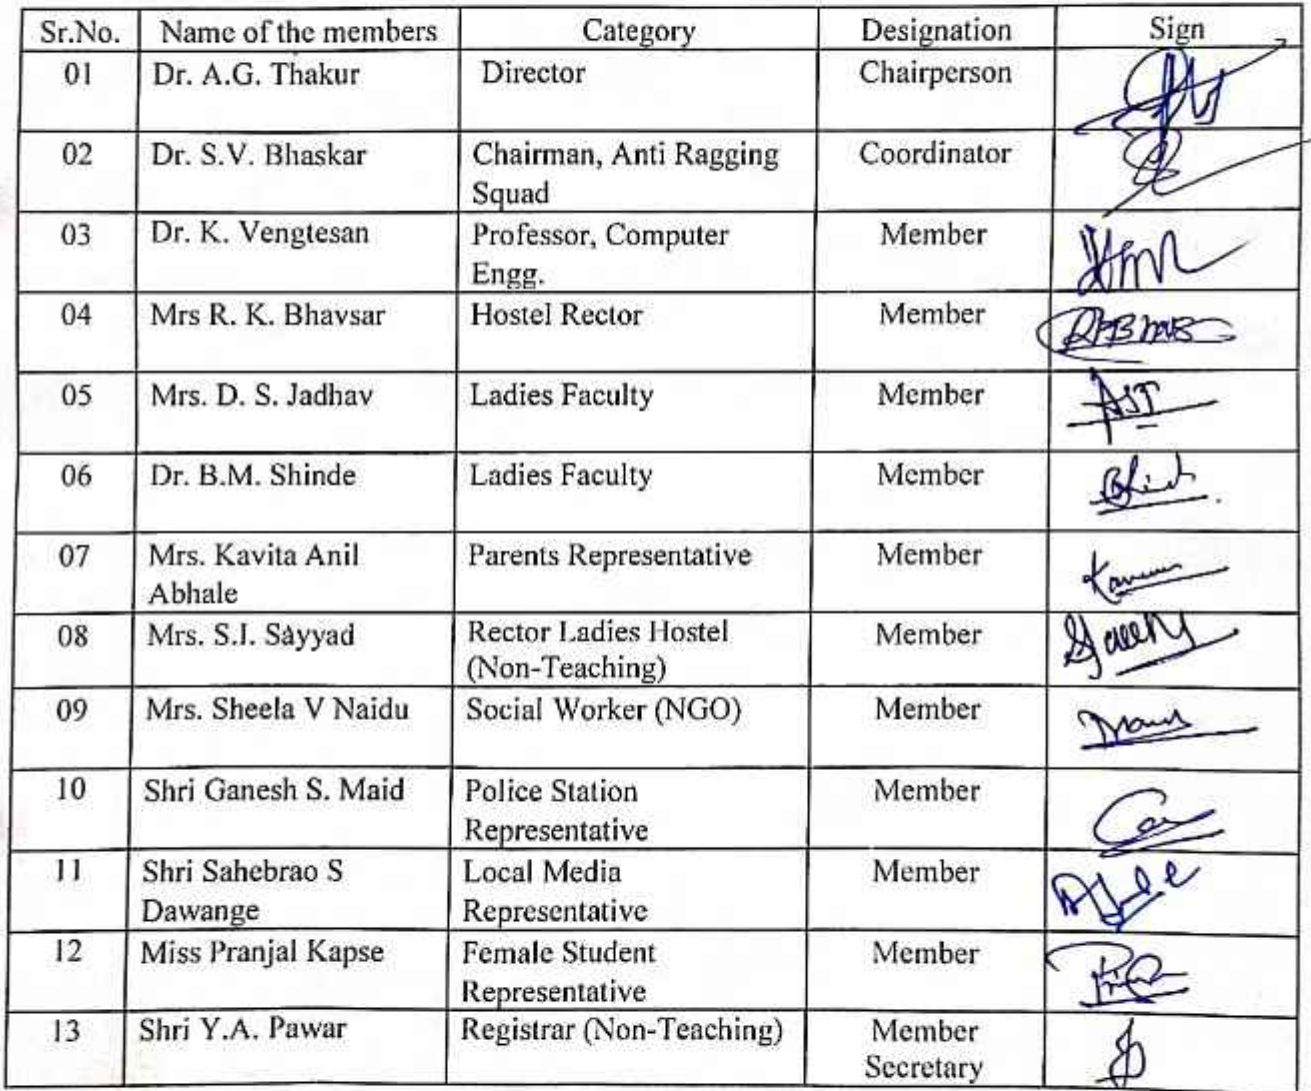 Sr.No. Name of the members Category Designation Sign
01 Dr. A.G. Thakur Director Chairperson
02 Dr. S.V. Bhaskar Chairman, Anti Ragging Coordinator
Squad
03 Dr. K. Vengtesan Professor, Computer Member
Engg.
04 Mrs R. K. Bhavsar Hostel Rector Member
05 Mrs. D. S. Jadhav Ladies Faculty Member
06 Dr. B.M. Shinde Ladies Faculty Member
07 Mrs. Kavita Anil Parents Representative Member
Abhale
08 Mrs. S.I. Sayyad Rector Ladies Hostel Member
(Non-Teaching)
09 Mrs. Sheela V Naidu Social Worker (NGO) Member
10 Shri Ganesh S. Maid Police Station Member
Representative
11 Shri Sahebrao S Local Media Member
Dawange Representative
12 Miss Pranjal Kapse Female Student Member
Representative
13 Shri Y.A. Pawar Registrar (Non-Teaching) Member
Secretary